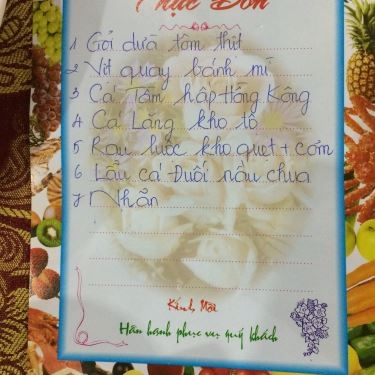 Thực Đơn
1 Gỏi dừa tôm thịt
2 Vịt quay bánh mì
3 Cá Tầm hấp Hồng Kông
4 Cá Lăng kho tộ
5 Rau luộc kho quẹt + cơm
6 Lẩu cá Đuối nấu chua
7 Nhãn
Kính Mời
Hân hạnh phục vụ quý khách